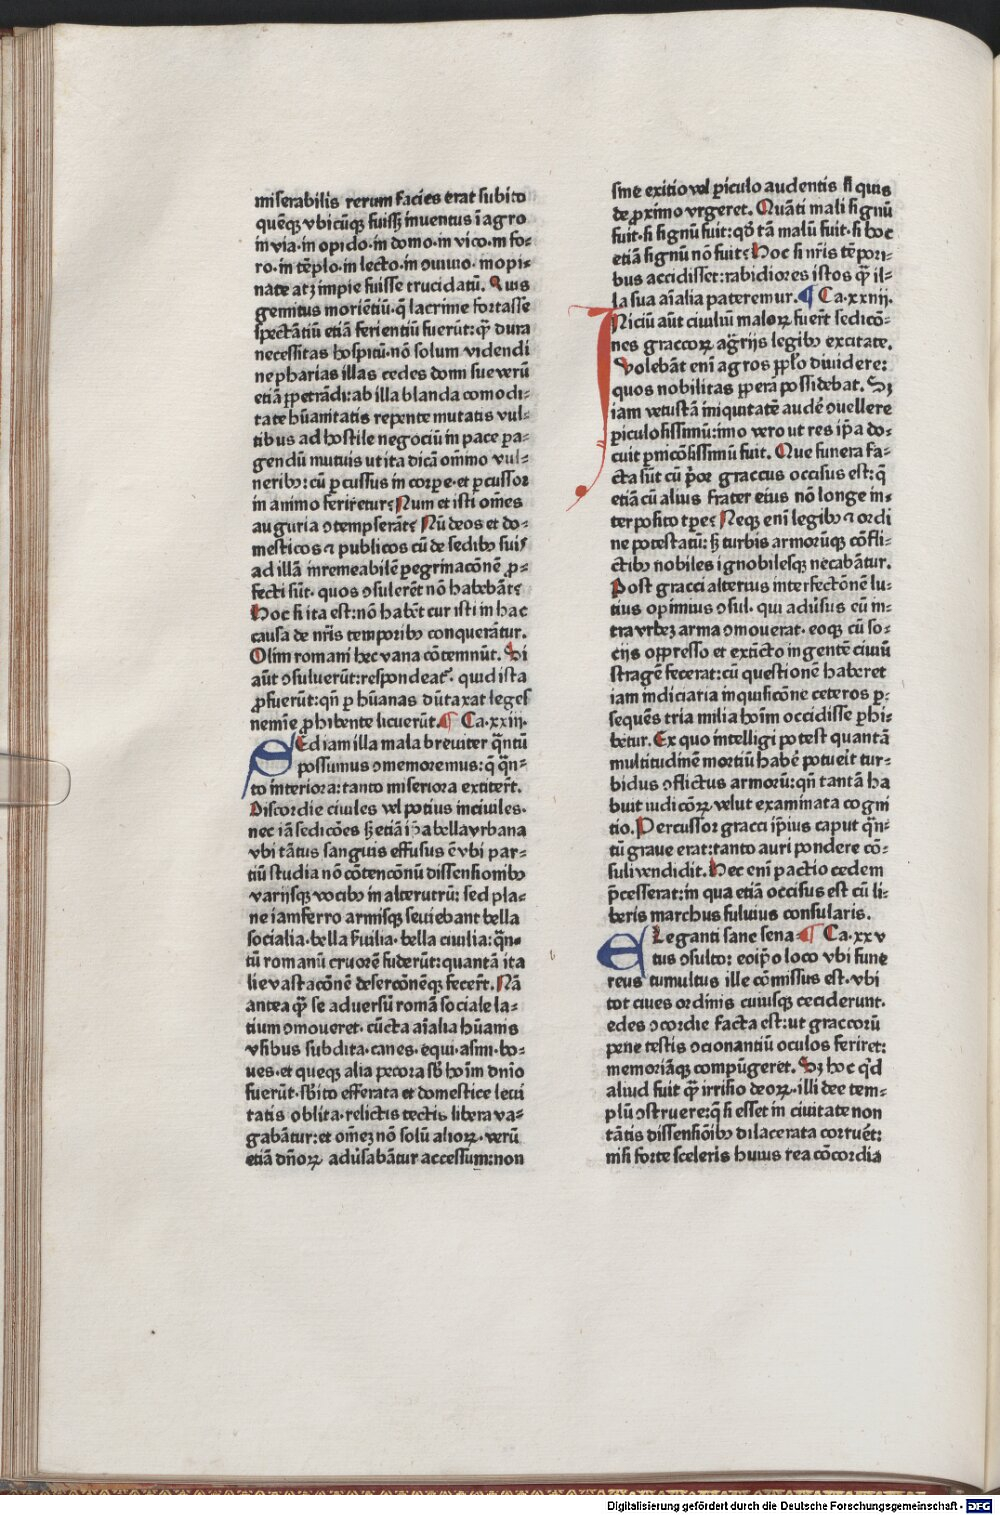 miserabilis rerum facies erat subito
quēqȝ vbicūqȝ fuissȝ inuentus ī agro
in via·in opido·in domo·in vico·in fo⸗
ro·in tēplo·in lecto·in ↄuiuio·inopi⸗
nate atqȝ impie fuisse trucidatū. Quis
gemitus moriētiū·q̄ lacrime fortasse
spectātiū etiā ferientiū fuerūt:q̄ꝫ dura
necessitas hospitū·nō solum videndi
nepharias illas cedes domi sue verū
etiā ꝑpetrādi:ab illa blanda comodi⸗
tate hūanitatis repente mutatis vul⸗
tibus ad hostile negociū in pace ꝑa⸗
gendū mutuis ut ita dicā oīno vul⸗
neribꝰ:cū ꝑcussus in corpe·et ꝑcussor
in animo feriretur? Num et isti oēs
auguria ↄtempserāt? Nū deos et do⸗
mesticos ⁊ publicos cū de sedibꝰ suis
ad illā inremeabilē ꝑegrinacōnē ꝓ⸗
fecti sūt· quos ↄsulerēt nō habebāt?
Hoc si ita est:nō habēt cur isti in hac
causa de nr̄is temporibꝰ conquerātur.
Olim romani hec vana cōtemnūt. Si
aūt ↄsuluerūt:respondeat᷑. quid ista
ꝓfuerūt:qn̄ ꝑ hūanas dūtaxat leges
nemīe ꝓhibente licuerūt.¶ Ca·xxiij·
SEd iam illa mala breuiter q̄ntū
possumus ↄmemoremus:q̄ q̄n⸗
to interiora:tanto miseriora extiter̄t.
Discordie ciuiles vel potius inciuiles·
nec iā sedicōes sȝ etiā ip̄a bella vrbana
vbi tātus sanguis effusus ē vbi par⸗
tiū studia nō cōtencōnū dissensionibꝰ
varijsqȝ vocibꝰ in alterutrū: sed pla⸗
ne iam ferro armisqȝ seuiebant bella
socialia·bella ẜuilia·bella ciuilia:q̄n⸗
tū romanū cruorē fuderūt:quantā ita
lie vastacōnē desercōnēqȝ fecer̄t. Nā
antea q̄ꝫ se aduersū romā sociale la⸗
tium ↄmoueret· cūcta aīalia hūanis
vsibus subdita·canes·equi·asini·bo⸗
ues·et queqȝ alia pecora sb̄ hoīm dnīo
fuerūt·sb̄ito efferata et domestice leni
tatis oblita·relictis tectis libera va⸗
gabātur:et oēȝ nō solū alioꝝ·verū
etiā dn̄oꝝ aduersabātur accessum:non
sine exitio vel ꝑiculo audentis si quis
de ꝓximo vrgeret. Quāti mali signū
fuit·si signū fuit:qd̄ tā malū fuit·si hoc
etiā signū nō fuit? Hoc si nr̄is tēpori⸗
bus accidisset:rabidiores istos q̄ꝫ il⸗
la sua aīalia pateremur.¶ Ca·xxiiij·
INiciū aūt ciuiliū maloꝝ fuer̄t sedicō⸗
nes graccoꝝ agrarijs legibꝰ excitate.
Volebāt enī agros pp̄lo diuidere:
quos nobilitas ꝑpera possidebat. Sȝ
iam vetustā iniquitatē audē ↄuellere
ꝑiculosissimū:imo vero ut res ip̄a do⸗
cuit ꝑnicōsissimū fuit. Que funera fa⸗
cta sūt cū p̄or graccus occisus est:q̄
etiā cū alius frater eius nō longe in⸗
terposito tꝑe? Neqȝ enī legibꝰ ⁊ ordi
ne potestatū: sȝ turbis armorūqȝ cōfli⸗
ctibꝰ nobiles ignobilesqȝ necabātur.
Post gracci alterius interfectōnē lu⸗
tius opimius ↄsul· qui aduersus eū in⸗
tra vrbeȝ arma ↄmouerat·eoqȝ cū so⸗
cijs opp̄resso et extīcto ingentē ciuiū
stragē fecerat:cū questionē haberet
iam iudiciaria inquisicōne ceteros ꝑ⸗
sequēs tria milia hoīm occidisse ꝑhi⸗
betur. Ex quo intelligi potest quantā
multitudinē mortiū habē potueit tur⸗
bidus ↄflictus armorū:qn̄ tantā ha
buit iudicōꝝ velut examinata cogni
tio. Percussor gracci ip̄ius caput q̄n⸗
tū graue erat:tanto auri pondere cō⸗
suli vendidit. Hec enī pactio cedem
p̄cesserat:in qua etiā occisus est cū li⸗
beris marchus fuluius consularis.
ELeganti sane sena⸗¶ Ca·xxv
tus ↄsulto: eoip̄o loco vbi fune
reus tumultus ille cōmissus est·vbi
tot ciues ordinis cuiusqȝ ceciderunt·
edes ↄcordie facta est:ut graccorū
pene testis ↄcionantiū oculos feriret:
memoriāqȝ compūgeret. Sȝ hoc qͥd
aliud fuit q̄ꝫ irrisio deoꝝ·illi dee tem⸗
plū ↄstruere:q̄ si esset in ciuitate non
tātis dissensiōibꝰ dilacerata corruēt:
nisi forte sceleris huius rea cōcordia
Digitalisierung gefördert durch die Deutsche Forschungsgemeinschaft · DFG